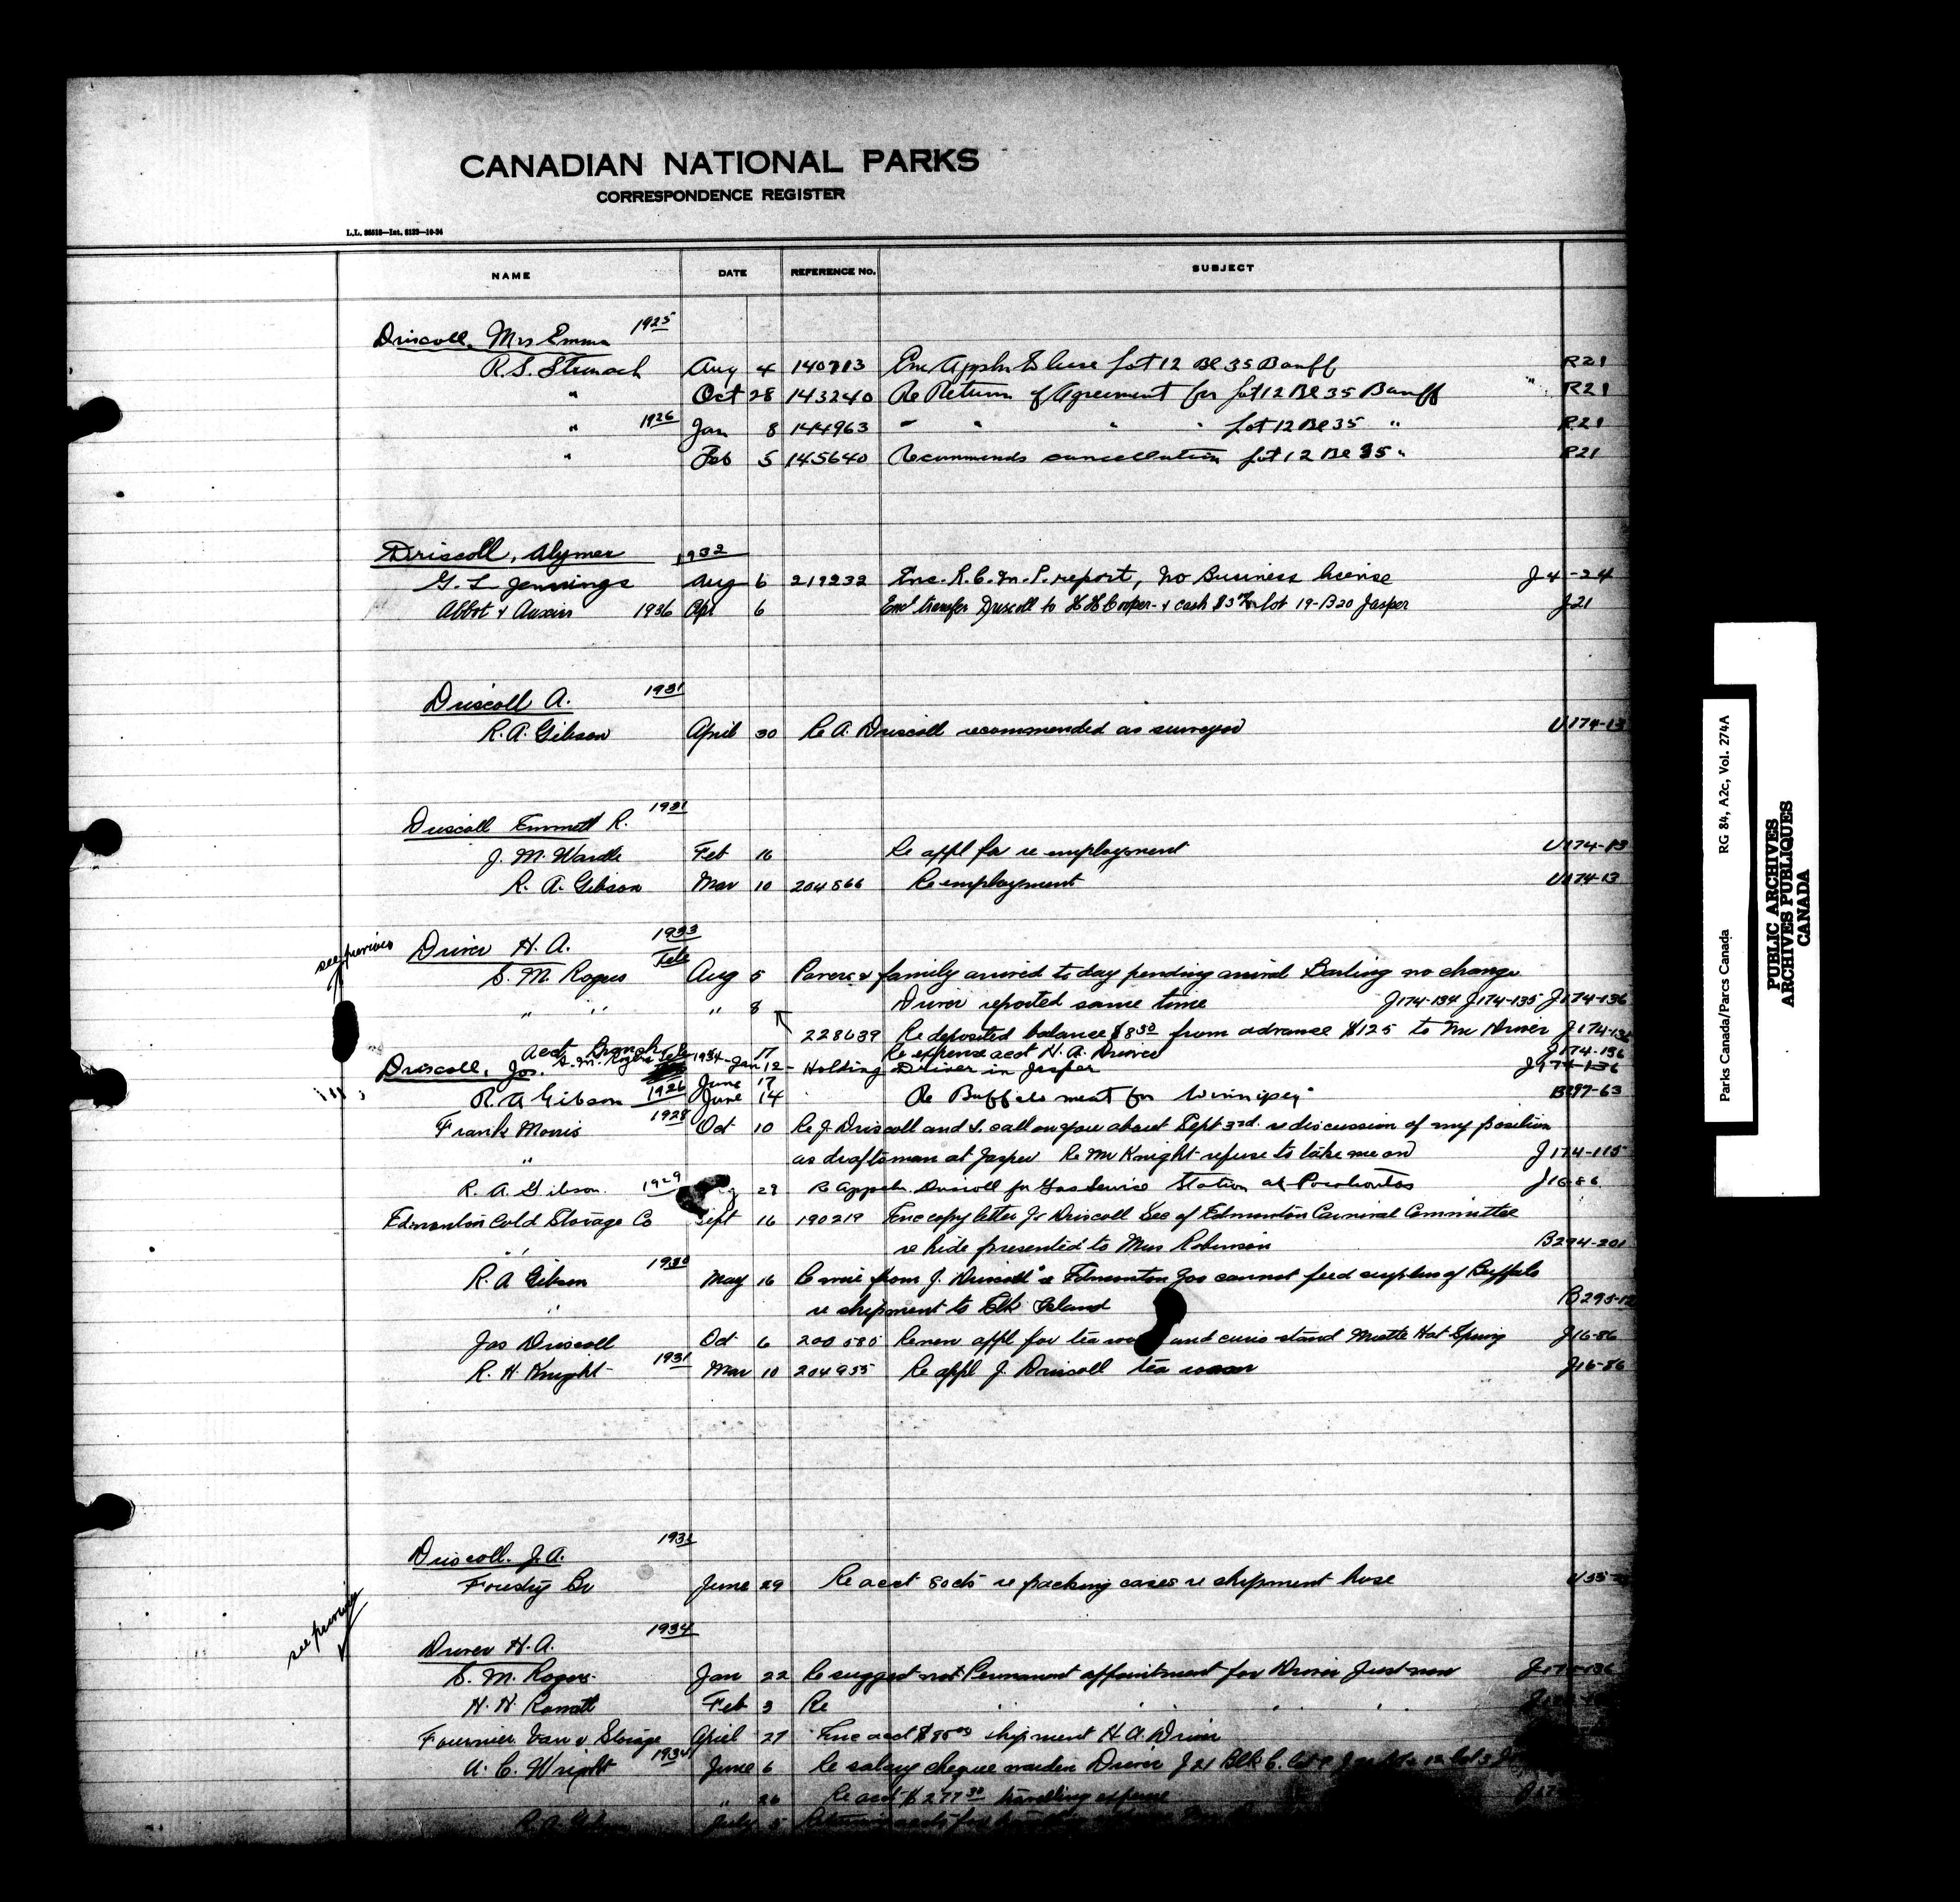 CANADIAN NATIONAL PARKS
CORRESPONDENCE REGISTER
NAME DATE REFERENCE No. SUBJECT
Driscoll, Mrs Emma 1925
R.S. Stronach Aug 4 140713 Enc Appln lease Lot 12 Bl 35 Banff R21
" Oct 28 143240 Re Return of Agreement for Lot 12 Bl 35 Banff R21
" 1926 Jan 8 144963 " " " " Lot 12 Bl 35 " R21
" Feb 5 145640 Recommends cancellation Lot 12 Bl 35 " R21
Driscoll, Alymer 1932
G. L Jennings Aug 6 219232 Enc. R.C.M.P. report, no Business license J4-24
Abbot & 1936 Apr 6 Encl transfer Driscoll to H H Cooper & cash lot 19-B20 Jasper J21
Driscoll A. 1931
R.A. Gibson April 30 Re A. Driscoll recommended as surveyor U174-13
Driscoll Emmett R. 1931
J. M. Wardle Feb 16 Re appl for re employment U174-13
R. A. Gibson Mar 10 204866 Re employment U174-13
see previous
Driver H. A. 1933
S. M. Rogers Tele Aug 5 & family arrived to day pending arrival Darling no change
" " " 8 Driver reported same time J174-134 J174-135 J174-136
228639 Re deposited balance $8 50 from advance $125 to Mr Driver J174-136
Acct Branch 17 Re expense acct H. A. Driver J174-136
S. M. Rogers Tele 1934-Jan 12 - Holding Driver in Jasper J174-136
Driscoll, Jos. June 17
R. A Gibson 1926 June 14 Re Buffalo meat for Winnipeg B297-63
Frank Morris 1928 Oct 10 Re J. Driscoll and I. call on you about Sept 3rd. re discussion of my position
" as draftsman at Jasper Re Mr Knight refuse to take me on J174-115
R. A. Gibson. 1929 29 Re Driscoll for Gas Service Station at Pocahontas J16-86
Edmonton Cold Storage Co Sept 16 190219 Enc copy letter Jos Driscoll Sec of Edmonton Carnival Committee
" re hide presented to Miss Robinson B294-201
R. A Gibson 1930 May 16 Re wire from J. Driscoll re Edmonton Zoo cannot feed surplus of Buffalo
" re shipment to Elk Island B295-12
Jos Driscoll Oct 6 200580 Renew appl for tea room and curio stand Miette Hot Spring J16-86
R. H. Knight 1931 Mar 10 204955 Re appl J. Driscoll tea room J16-86
Driscoll. J.A.
Forestry Br June 29 Re acct 80cts re packing cases re shipment hose
see previous
Driver H. A. 1934
S. M. Rogers Jan 22 Re suggest not Permanent appointment for Driver Just now J174-136
H. H. Feb 3 Re " " " "
Fournier Van & Storage April 27 Enc acct shipment H. A. Driver
A. C. Wright 1934 June 6 Re salary cheque warden Driver J21 Blk C.
" 26 Re acct $277 travelling expense
R. A. Gibson July 5
Parks Canada/Parcs Canada RG 84, A2c, Vol. 274A
PUBLIC ARCHIVES
ARCHIVES PUBLIQUES
CANADA